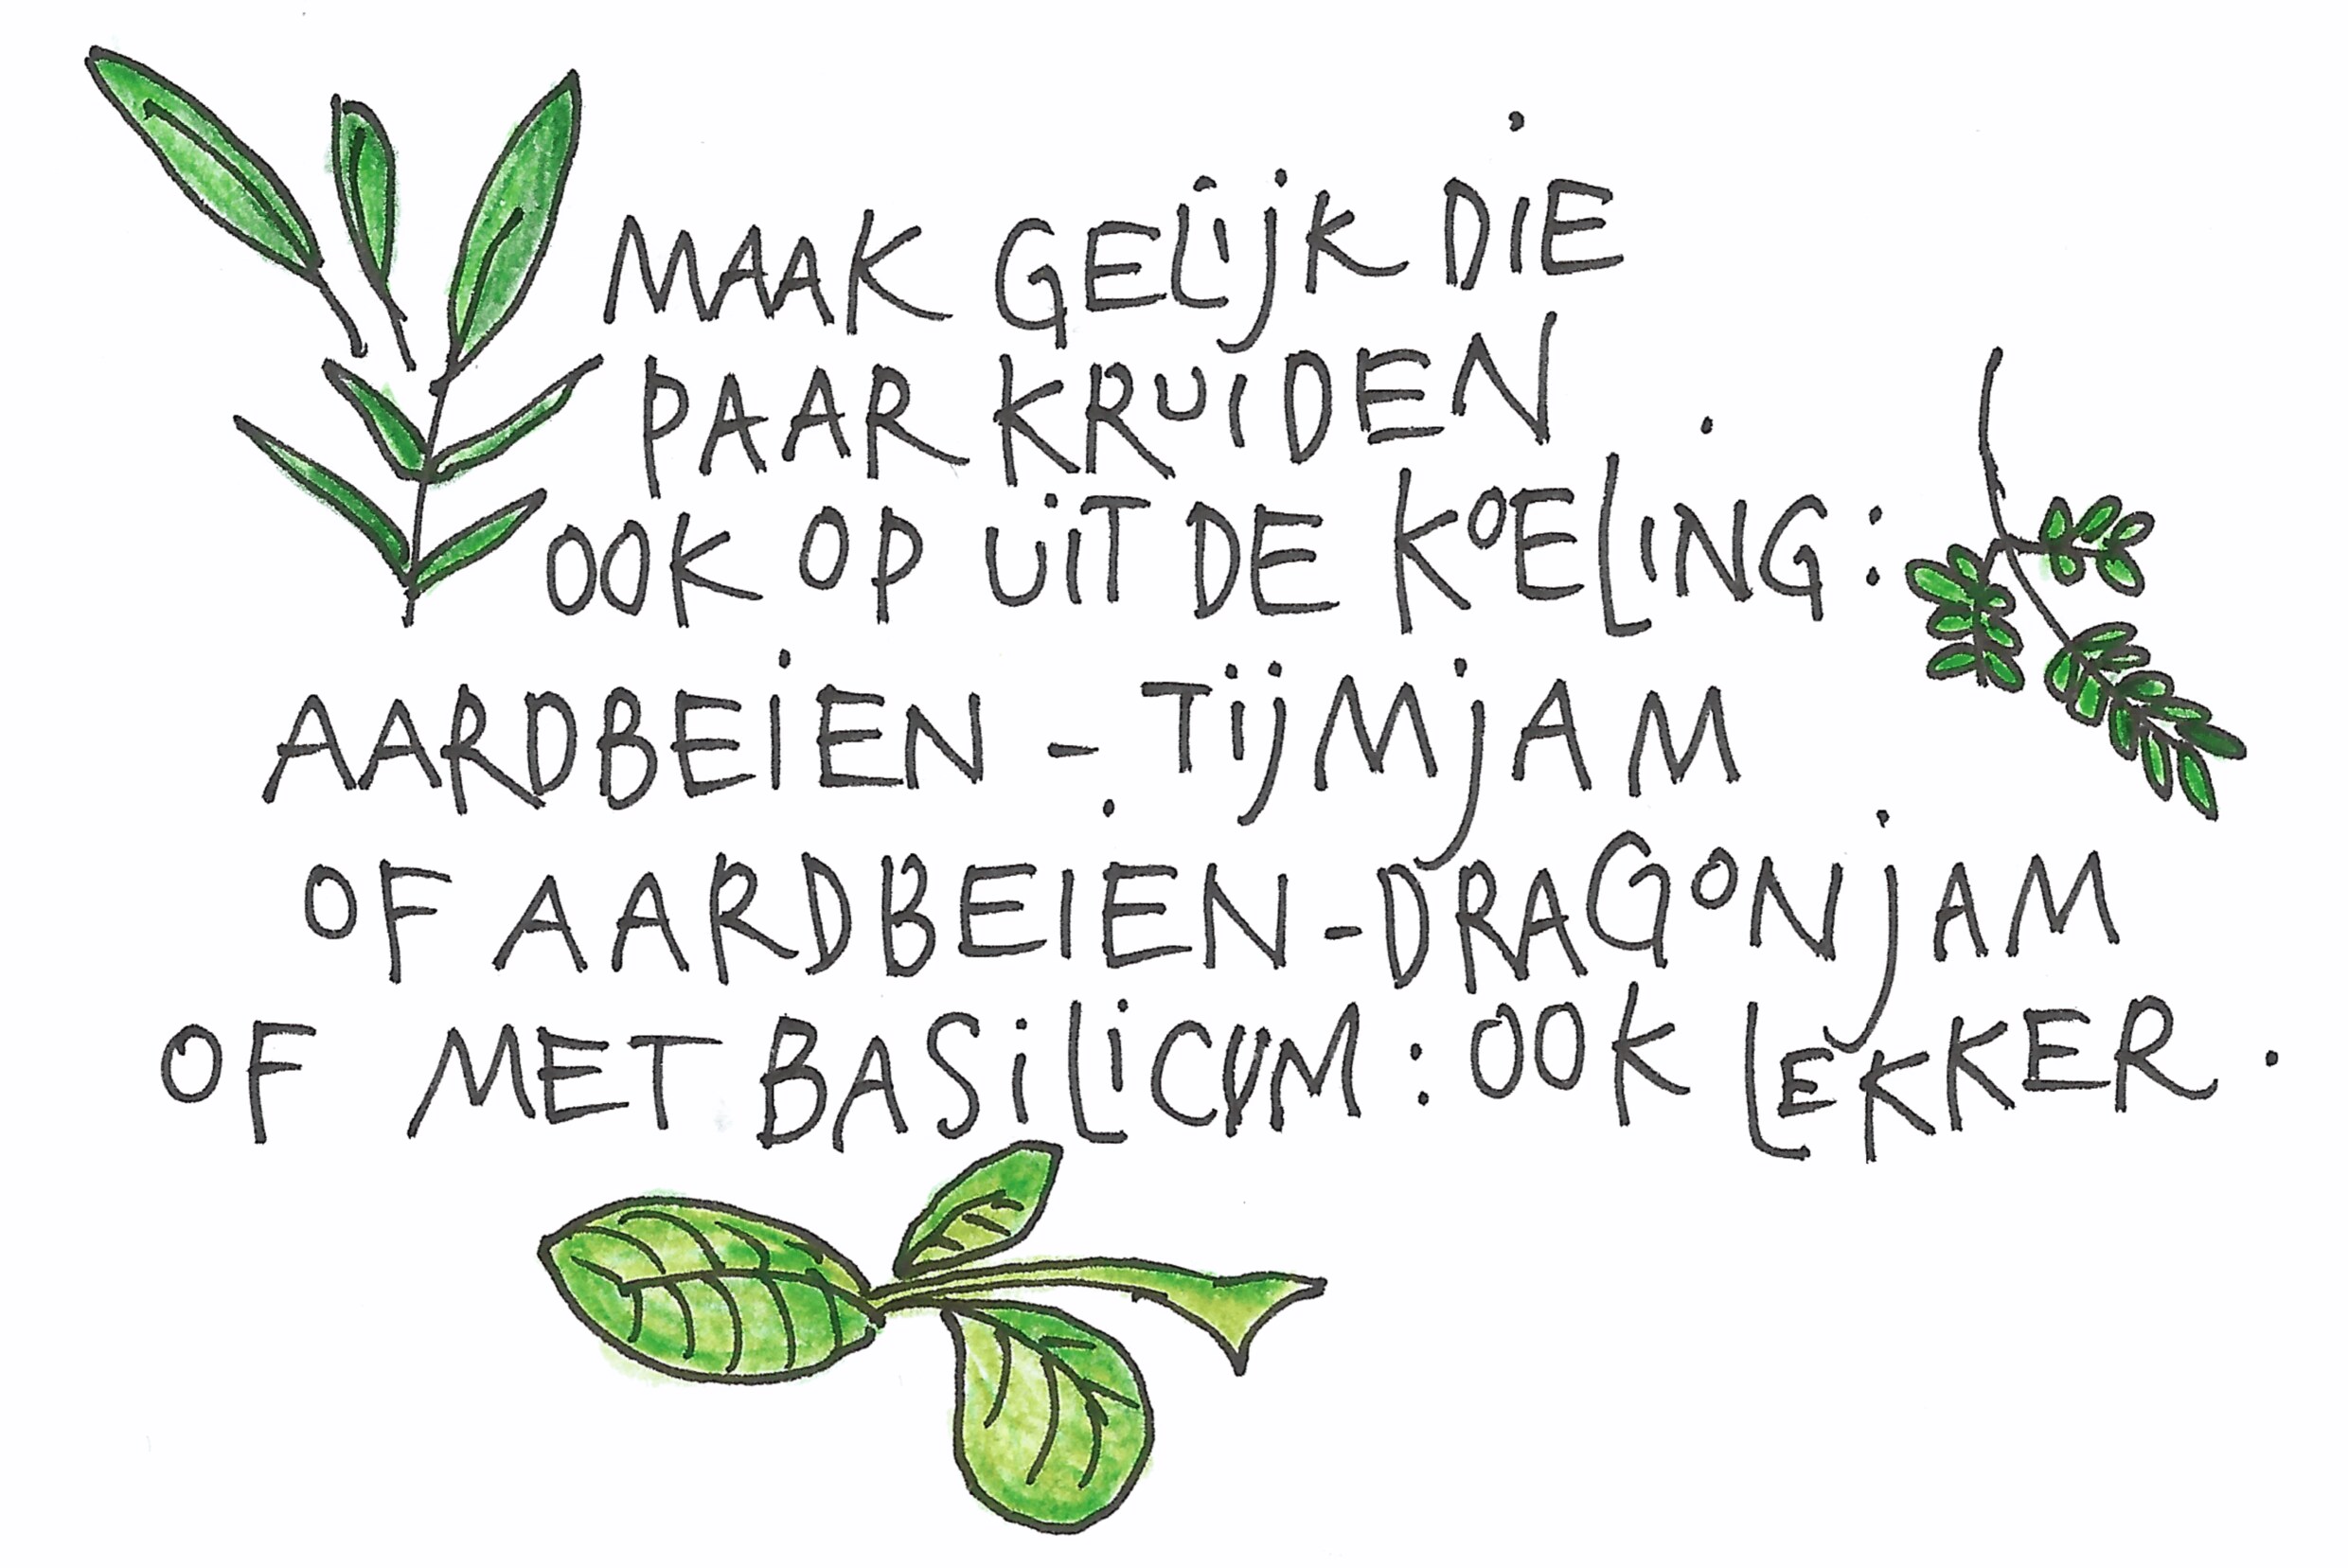 MAAK GELIJK DIE
PAAR KRUIDEN
OOK OP UIT DE KOELING:
AARDBEIEN - TIJMJAM
OF AARDBEIEN-DRAGONJAM
OF MET BASILICUM: OOK LEKKER.